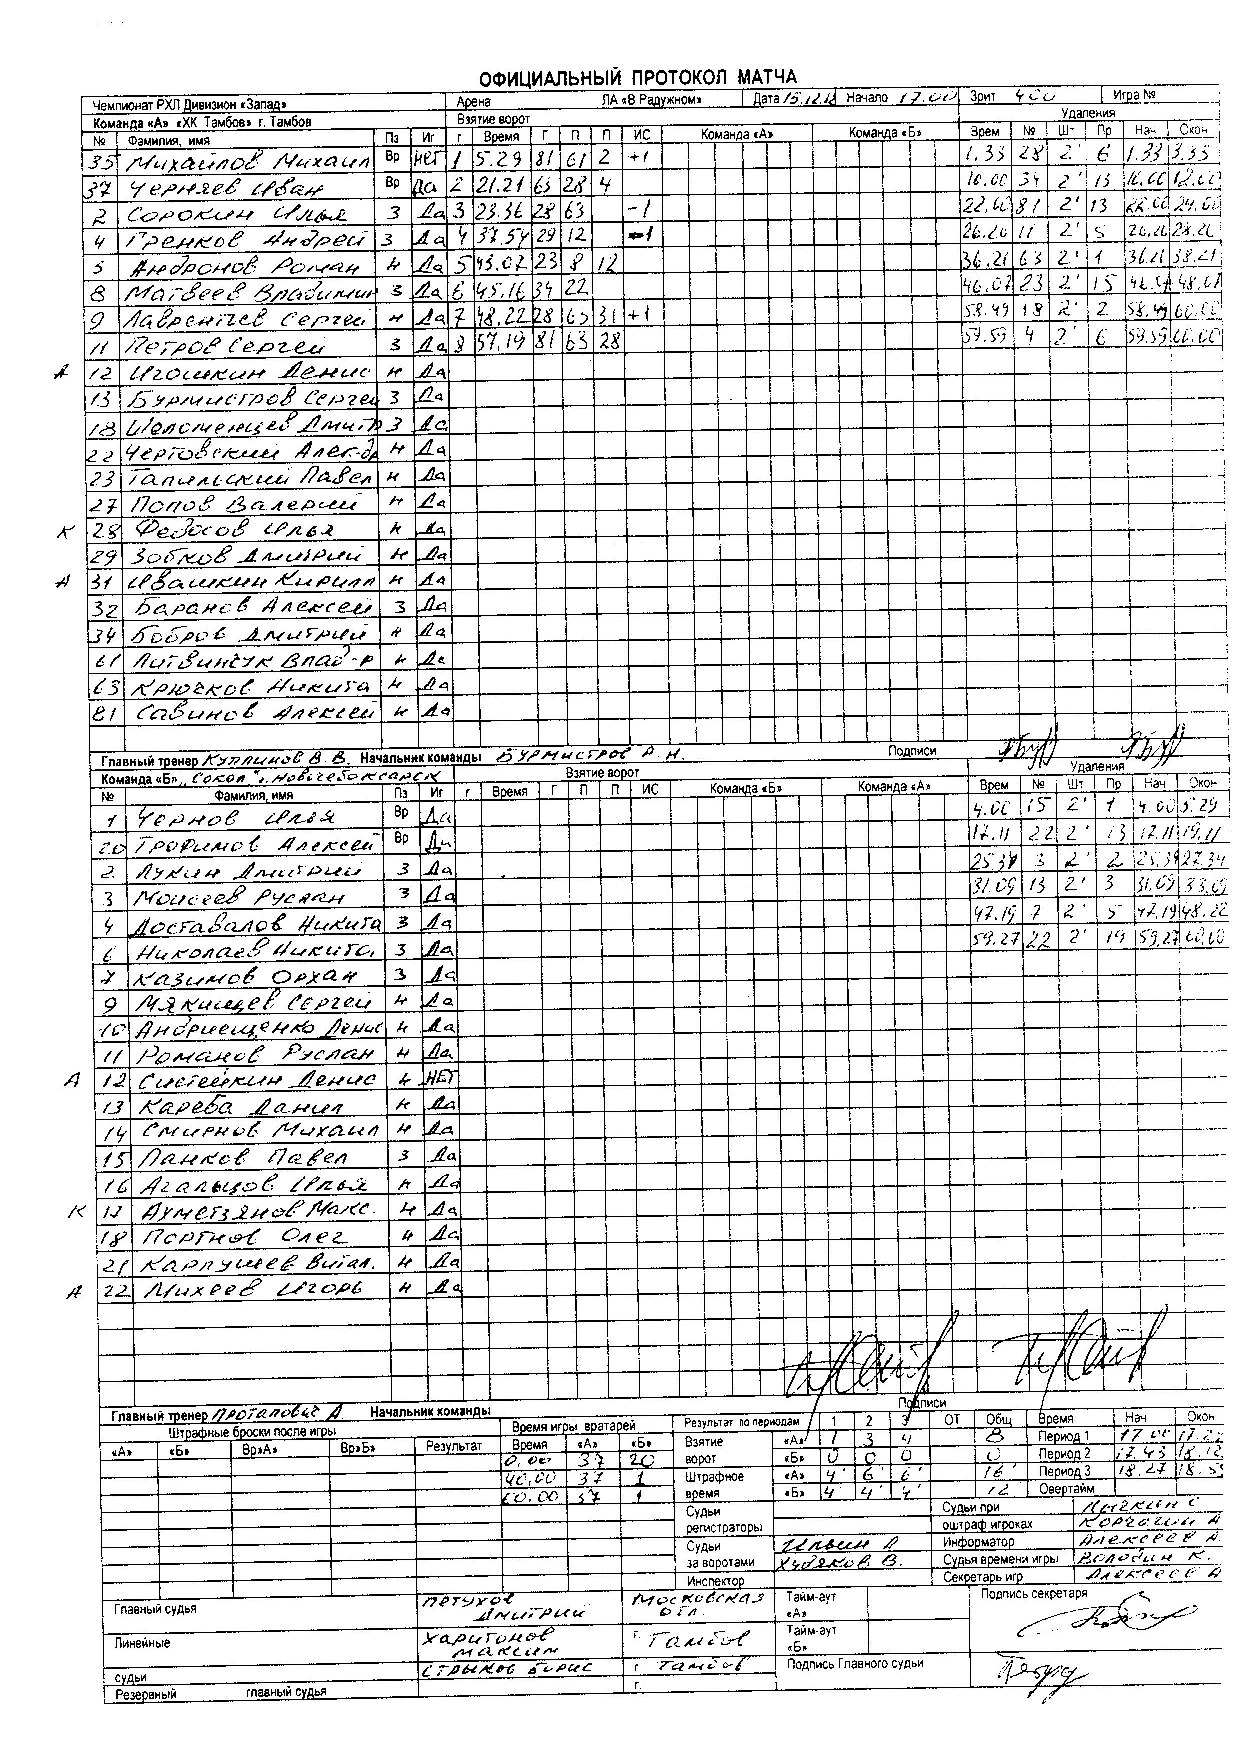 ОФИЦИАЛЬНЫЙ ПРОТОКОЛ МАТЧА
Чемпионат РХЛ Дивизион «Запад» Арена ЛА «В Радужном» Дата 15.12.12 Начало 17.00 Зрит 400 Игра №
Команда «А» «ХК Тамбов» г. Тамбов Взятие ворот Удаления
№ Фамилия, имя Пз Иг г Время Г П П ИС Команда «А» Команда «Б» Врем № Шт Пр Нач Скон
35 Михайлов Михаил Вр НЕТ 1 5.29 81 61 2 +1 1.33 28 2' 6 1.33 3.33
37 Черняев Иван Вр Да 2 21.21 63 28 4 10.00 34 2' 13 10.00 12.00
2 Сорокин Илья З Да 3 23.36 28 63 -1 22.00 81 2' 13 22.00 24.00
4 Гренков Андрей З Да 4 37.54 29 12 -1 26.20 11 2' 5 26.20 28.20
5 Андронов Роман Н Да 5 43.02 23 8 12 36.21 63 2' 1 36.21 38.21
8 Матвеев Владимир З Да 6 45.16 34 22 46.07 23 2' 15 46.07 48.07
9 Лаврентьев Сергей Н Да 7 48.22 28 63 31 +1 58.49 18 2' 2 58.49 60.00
11 Петров Сергей З Да 8 57.19 81 63 28 59.59 4 2' 6 59.59 60.00
А 12 Игошкин Денис Н Да
13 Бурмистров Сергей З Да
18 Шеломенцев Дмитр З Да
22 Чертовский Алек-др Н Да
23 Тапильский Павел Н Да
27 Попов Валерий Н Да
К 28 Федосов Илья Н Да
29 Зобков Дмитрий Н Да
А 31 Ивашкин Кирилл Н Да
32 Баранов Алексей З Да
34 Бобров Дмитрий Н Да
61 Литвинчук Влад-р Н Да
63 Крючков Никита Н Да
81 Савинов Алексей Н Да
Главный тренер Куплинов В.В. Начальник команды Бурмистров А.Н. Подписи
Команда «Б» „Сокол" г. Новочебоксарск Взятие ворот Удаления
№ Фамилия, имя Пз Иг г Время Г П П ИС Команда «Б» Команда «А» Врем № Шт Пр Нач Окон
1 Чернов Илья Вр Да 4.00 15 2' 1 4.00 5.29
20 Трофимов Алексей Вр Да 17.11 22 2' 13 17.11 19.11
2 Лукин Дмитрий З Да 25.34 3 2' 2 25.34 27.34
3 Моисеев Руслан З Да 31.09 13 2' 3 31.09 33.09
4 Доставалов Никита З Да 47.19 7 2' 5 47.19 48.22
6 Николаев Никита З Да 59.27 22 2' 19 59.27 60.00
7 Казимов Орхан З Да
9 Мякишев Сергей Н Да
10 Андриещенко Денис Н Да
11 Романов Руслан Н Да
А 12 Системкин Денис Н НЕТ
13 Кареба Данил Н Да
14 Смирнов Михаил Н Да
15 Панков Павел З Да
16 Агальцов Илья Н Да
К 17 Ахметзянов Макс. Н Да
18 Портнов Олег Н Да
21 Карпушев Витал. Н Да
А 22 Михеев Игорь Н Да
Подписи
Главный тренер Протапович А Начальник команды
Штрафные броски после игры Время игры вратарей Результат по периодам 1 2 3 ОТ Общ Время Нач Окон
«А» «Б» Вр»А» Вр»Б» Результат Время «А» «Б» Взятие «А» 1 3 4 8 Период 1 17.00
0.00 37 20 ворот «Б» 0 0 0 0 Период 2 17.43 18.12
40.00 37 1 Штрафное «А» 4' 6' 6' 16' Период 3 18.27
60.00 37 1 время «Б» 4' 4' 4' 12 Овертайм
Судьи Судьи при Лычкин С
регистраторы оштраф игроках Корчагин А
Судьи Ильин А Информатор Алексеев А.
за воротами Худяков В. Судья времени игры Володин К.
Инспектор Секретарь игр Алексеев А
Главный судья Петухов Дмитрий Московская обл. Тайм-аут «А» Подпись секретаря
Линейные Харитонов Максим г. Тамбов Тайм-аут «Б»
судьи Стрыков Борис г Тамбов Подпись Главного судьи
Резервный главный судья г.